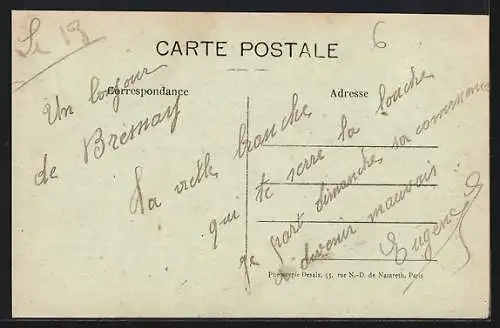 Le 13
6
CARTE POSTALE
Correspondance
Adresse
Un bonjour
de Bresnay
Ta vieille branche
qui te serre la louche
part dimanche, sa commence
a devenir mauvais
Eugène
Phototypie Desaix, 53, rue N.-D. de Nazareth, Paris